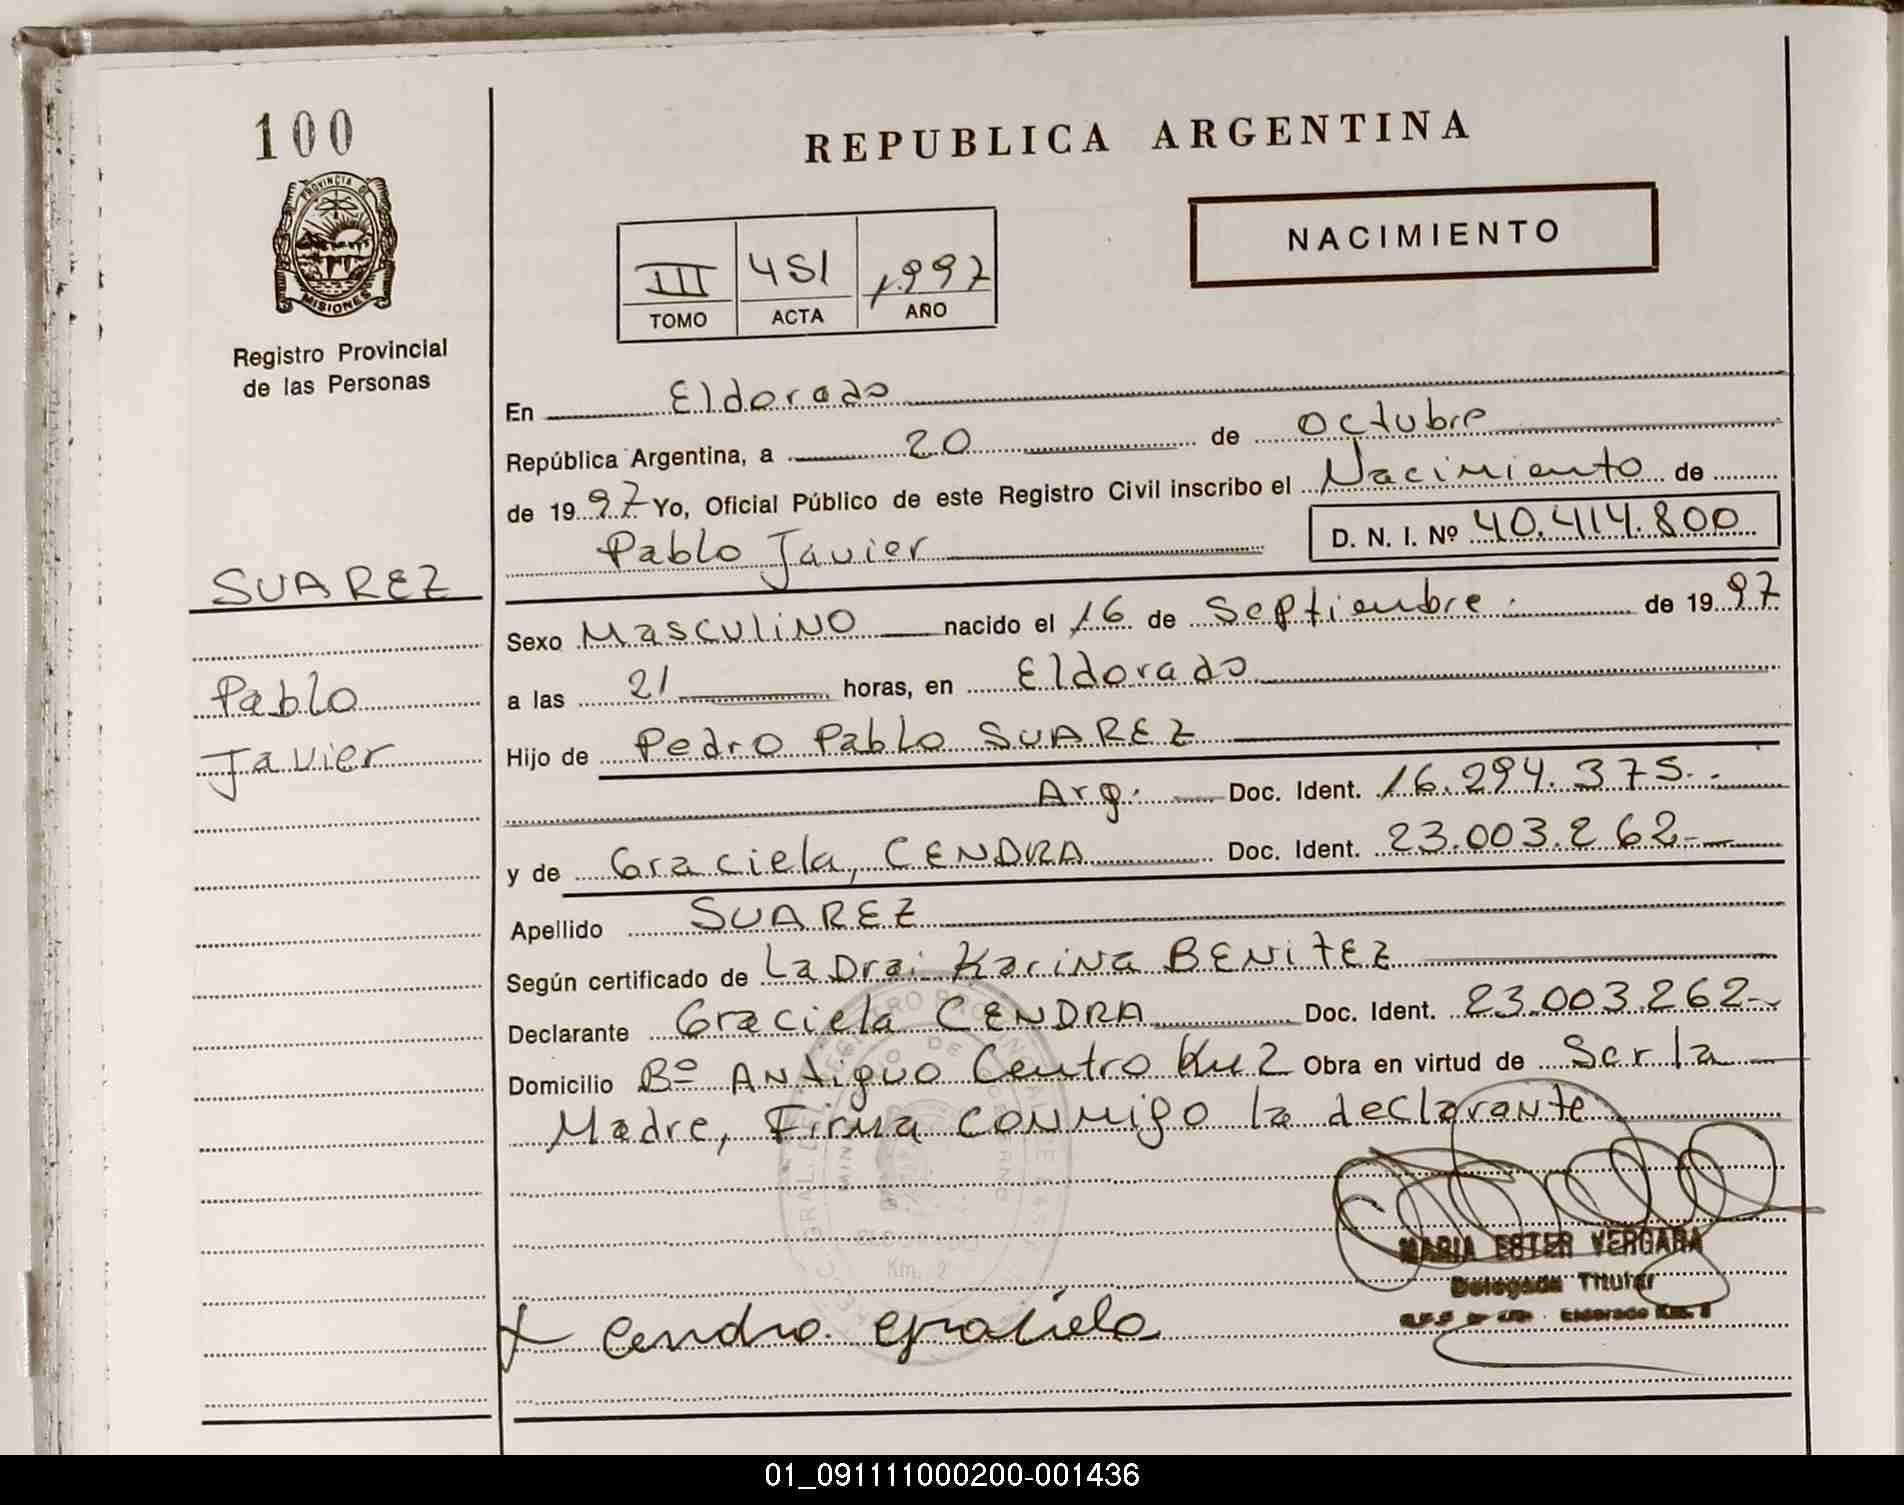 100
PROVINCIA DE
MISIONES
Registro Provincial
de las Personas
REPUBLICA ARGENTINA
NACIMIENTO
III 451 1.997
TOMO ACTA AÑO
En Eldorado
República Argentina, a 20 de octubre
de 1997 Yo, Oficial Público de este Registro Civil inscribo el Nacimiento de
Pablo Javier D. N. I. Nº 40.414.800
SUAREZ
Sexo Masculino nacido el 16 de Septiembre. de 1997
Pablo
a las 21 horas, en Eldorado
Javier
Hijo de Pedro Pablo SUAREZ
Arg. Doc. Ident. 16.294.375.-
y de Graciela, CENDRA Doc. Ident. 23.003.262-
Apellido SUAREZ
Según certificado de La Dra: Karina BENITEZ
Declarante Graciela CENDRA Doc. Ident. 23.003.262-
Domicilio Bº Antiguo Centro Km 2 Obra en virtud de Ser la
Madre, Firma conmigo la declarante
Km. 2
MARIA ESTER VERGARA
Delegada Titular
Eldorado Km. 2
x Cendra Graciela
01_091111000200-001436